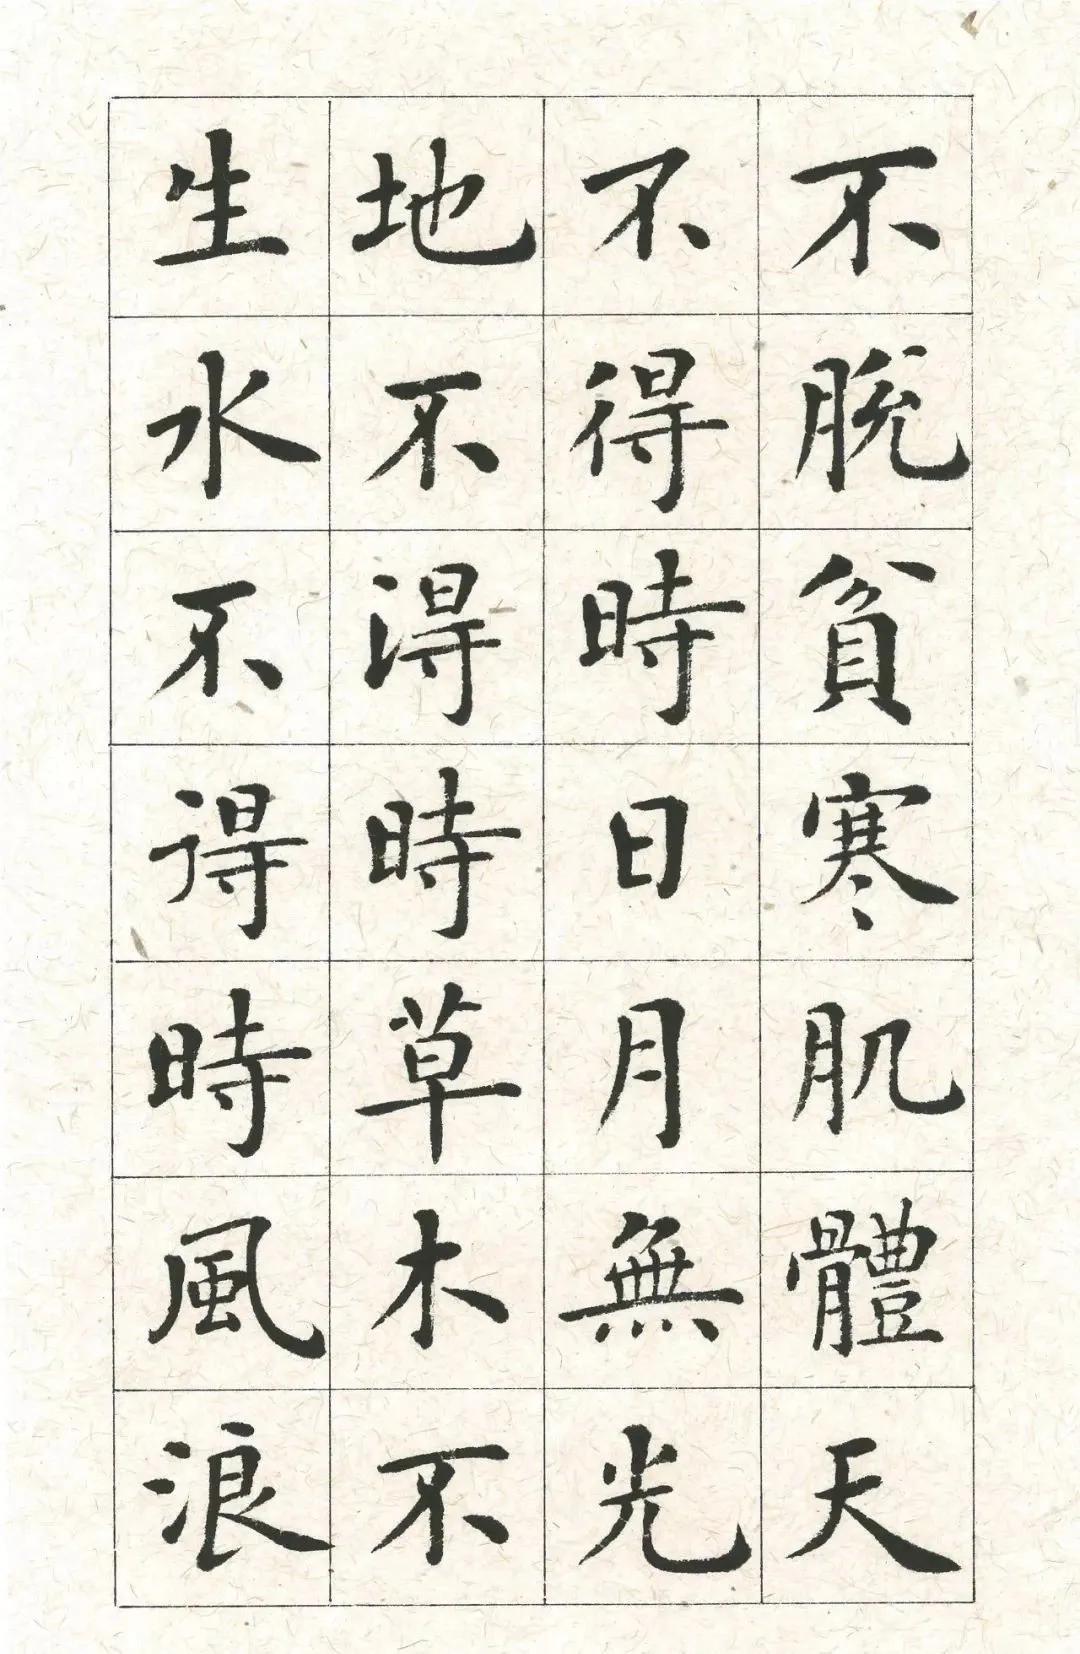 不脫貧寒肌體天
不得時日月無光
地不得時草木不
生水不得時風浪